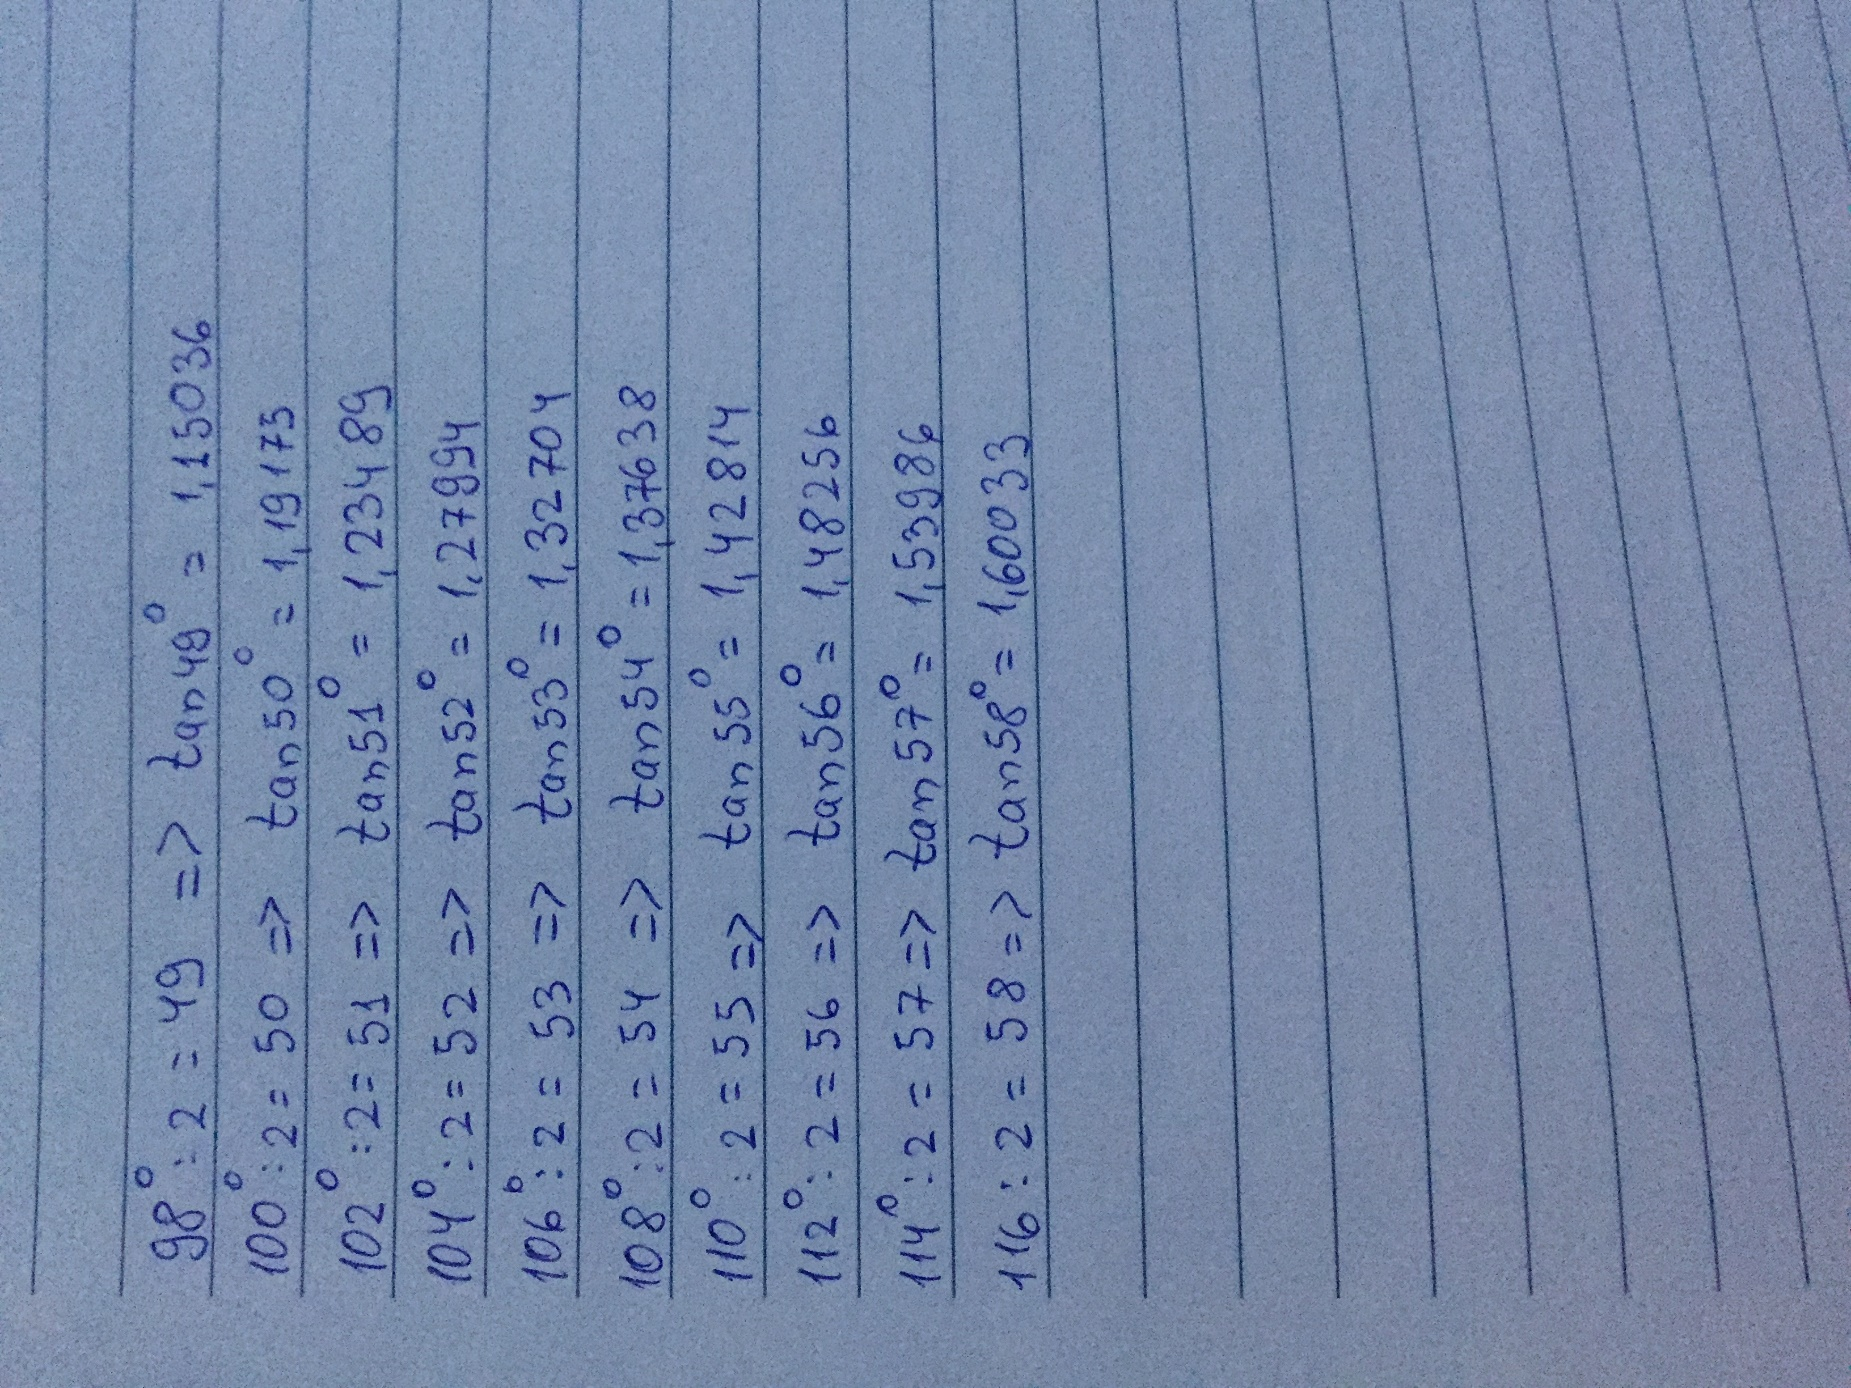 98° : 2 = 49 => tan 49° = 1,15036
100° : 2 = 50 => tan 50° = 1,19175
102° : 2 = 51 => tan 51° = 1,23489
104° : 2 = 52 => tan 52° = 1,27994
106° : 2 = 53 => tan 53° = 1,32704
108° : 2 = 54 => tan 54° = 1,37638
110° : 2 = 55 => tan 55° = 1,42814
112° : 2 = 56 => tan 56° = 1,48256
114° : 2 = 57 => tan 57° = 1,53986
116 : 2 = 58 => tan 58° = 1,60033